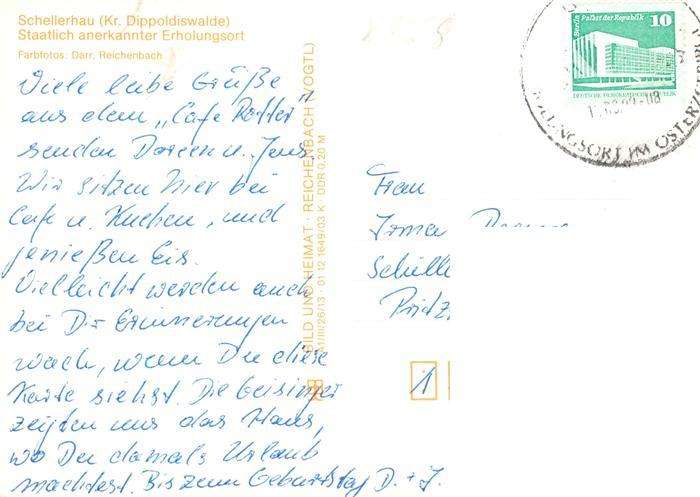 Schellerhau (Kr. Dippoldiswalde)
Staatlich anerkannter Erholungsort
Farbfotos: Darr, Reichenbach
Viele liebe Grüße
aus dem „Cafe Rotter"
senden Doreen u. Jens.
Wir sitzen hier bei
Cafe u. Kuchen, und
jenießen Eis.
Vielleicht werden auch
bei Dir Erinnerungen
wach, wenn Du diese
Karte siehst. Die Geisinger
zeigten uns das Haus,
wo Du damals Urlaub
machtest. Bis zum Geburtstag D. + J.
BILD UND HEIMAT · REICHENBACH (VOGTL)
A1/III/26/13 01 12 1649/03 K DDR 0,20 M
Berlin, Palast der Republik
10
DEUTSCHE DEMOKRATISCHE
ORT IM OSTERZGEB
Frau
Irma
Schille
Pritz
1